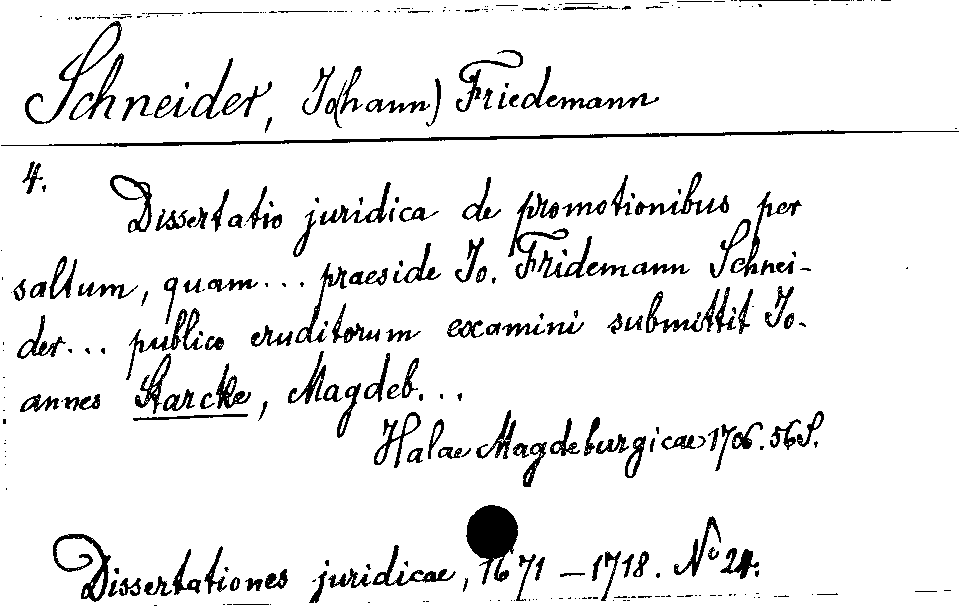 Schneider, Jo(hann) Friedemann
4.
Dissertatio juridica de promotionibus per
saltum, quam... praeside Jo. Fridemann Schnei-
der... publico eruditorum examini submittit Jo-
annes Starcke, Magdeb...
Halae Magdeburgicae 1706. 56 S.
Dissertationes juridicae, 1671-1718. No 24.